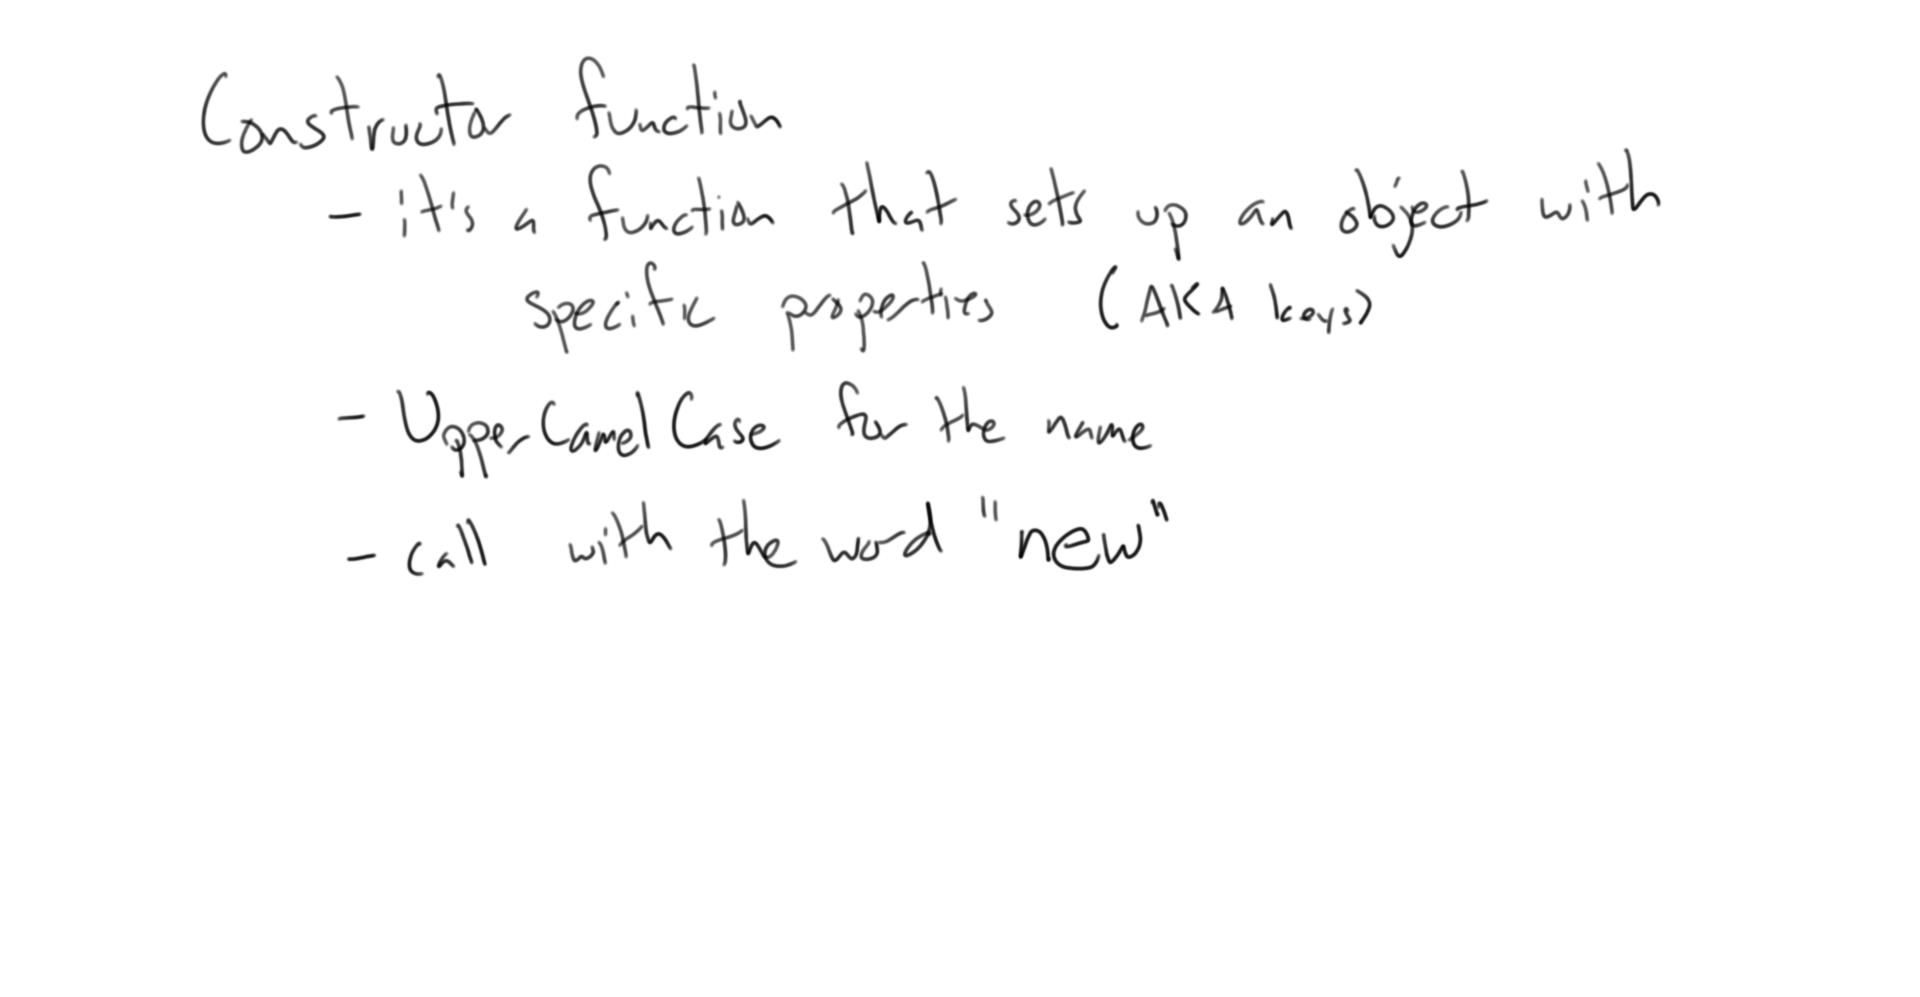 Constructor function
- it's a function that sets up an object with
specific properties (AKA keys)
- UpperCamelCase for the name
- call with the word "new"